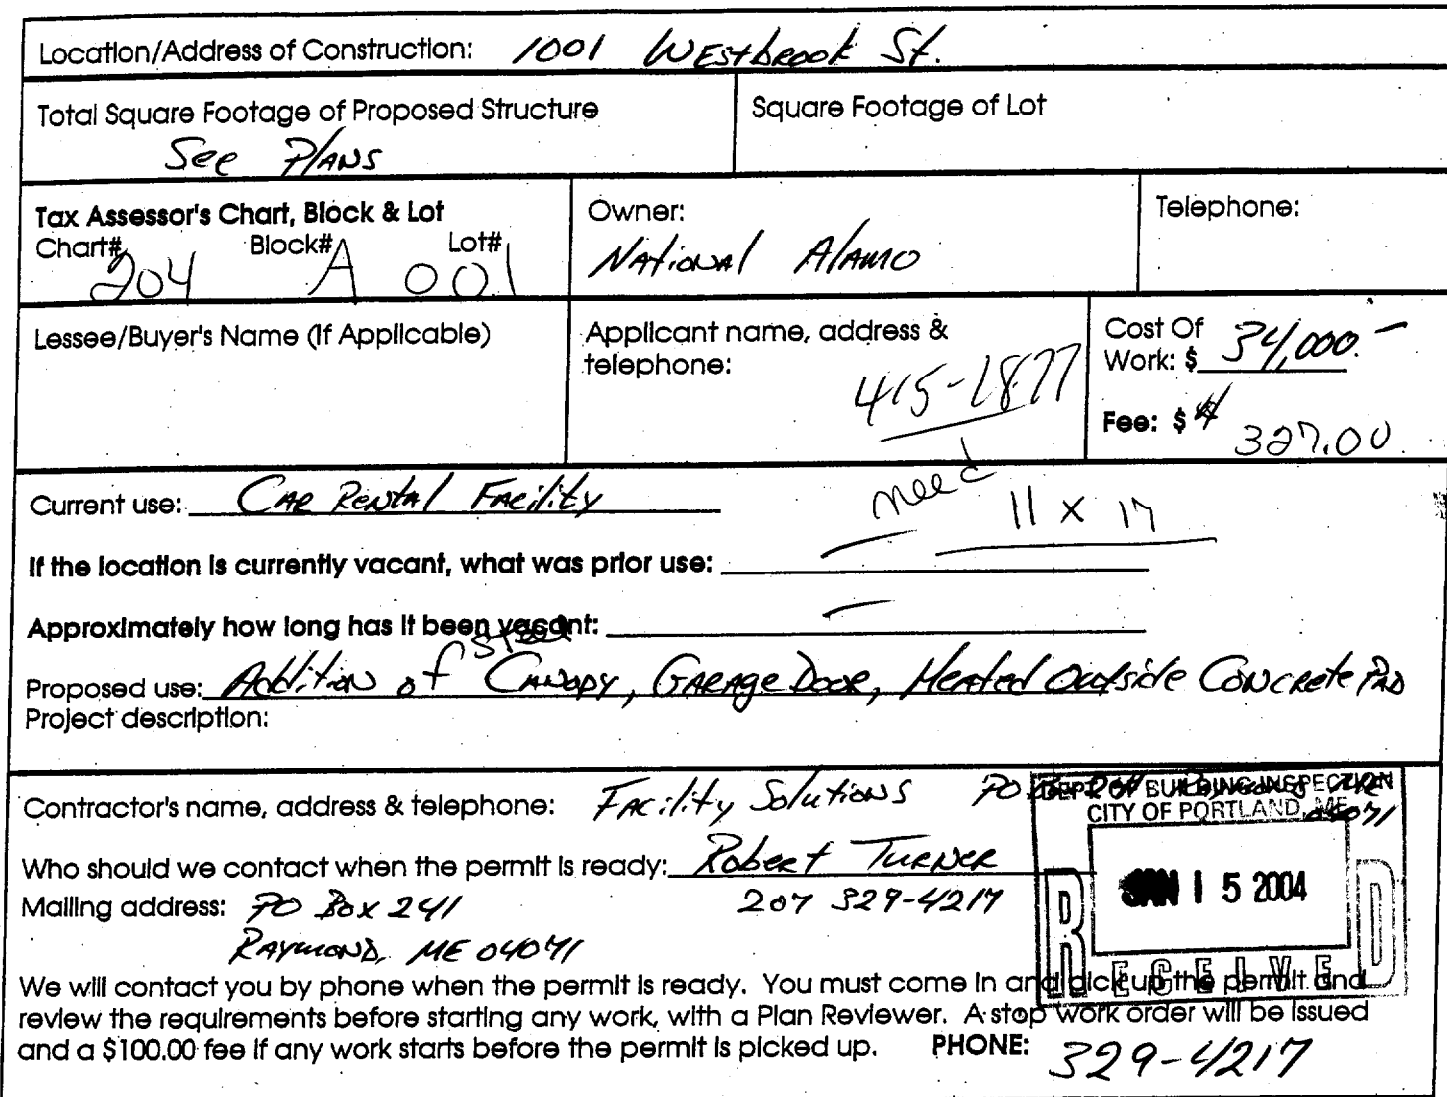 Location/Address of Construction: 1001 Westbrook St.
Total Square Footage of Proposed Structure
See Plans
Square Footage of Lot
Tax Assessor's Chart, Block & Lot
Chart# Block# Lot#
204 A 001
Owner:
National Alamo
Telephone:
Lessee/Buyer's Name (If Applicable)
Applicant name, address &
telephone:
415-1877
Cost Of
Work: $ 34,000.-
Fee: $ 327.00
Current use: Car Rental Facility
need
11 x 17
If the location is currently vacant, what was prior use: —
Approximately how long has it been vacant: —
Proposed use: Addition of Steel Canopy, Garage Door, Heated Outside Concrete Pad
Project description:
Contractor's name, address & telephone: Facility Solutions PO
04071
DEPT. OF BUILDING INSPECTION
CITY OF PORTLAND, ME
Who should we contact when the permit is ready: Robert Turner
JAN 15 2004
RECEIVED
Mailing address: PO Box 241 207 329-4217
Raymond, ME 04071
We will contact you by phone when the permit is ready. You must come in and pick up the permit and
review the requirements before starting any work, with a Plan Reviewer. A stop work order will be issued
and a $100.00 fee if any work starts before the permit is picked up. PHONE: 329-4217